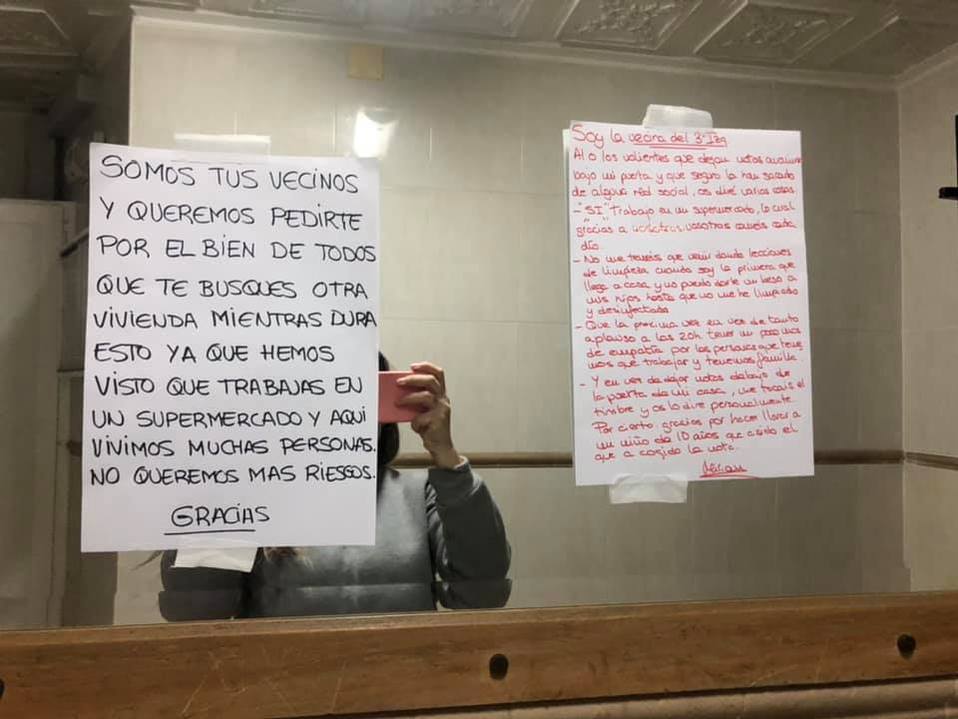 SOMOS TUS VECINOS
Y QUEREMOS PEDIRTE
POR EL BIEN DE TODOS
QUE TE BUSQUES OTRA
VIVIENDA MIENTRAS DURA
ESTO YA QUE HEMOS
VISTO QUE TRABAJAS EN
UN SUPERMERCADO Y AQUI
VIVIMOS MUCHAS PERSONAS.
NO QUEREMOS MAS RIESGOS.
GRACIAS
Soy la vecina del 3º Izq
Al o los valientes que dejan notas
bajo mi puerta y que seguro la han sacado
de alguna red social, os diré varias cosas.
- "SI" Trabajo en un supermercado, lo cual
gracias a nosotros vosotros coméis cada
día.
- No me tenéis que venir dando lecciones
de limpieza cuando soy la primera que
llega a casa y no puedo darle un beso a
mis hijos hasta que no me he limpiado
y desinfectado
- Que la proxima vez en vez de tanto
aplauso a las 20h tener un poco mas
de empatia por las personas que tene
mos que trabajar y tenemos familia.
- Y en vez de dejar notas debajo de
la puerta de mi casa, me tocais el
timbre y os lo dire personalmente
Por cierto gracias por hacer llorar a
un niño de 10 años que a sido el
que a cogido la nota.
Miriam